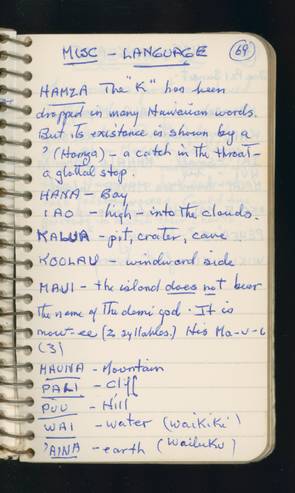 MISC - LANGUAGE 69
HAMZA The "K" has been
dropped in many Hawaiian words.
But its existence is shown by a
? (Hamza) - a catch in the throat -
a glottal stop.
HANA - Bay
IAO - high - into the clouds.
KALUA - pit, crater, cave
KOOLAU - windward side
MAUI - the island does not bear
the name of the demi god. It is
mow-ee (2 syllables.) His Ma-u-i
(3)
MAUNA - Mountain
PALI - Cliff
PUU - Hill
WAI - water (Waikiki)
'AINA - earth (Wailuku)